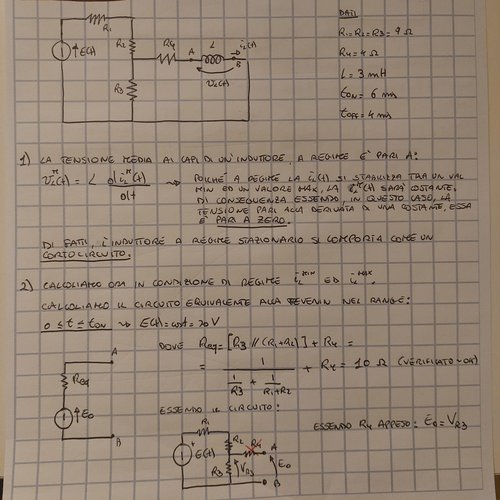 R1
R2
R4
L
iL(t)
E(t)
A
B
vL(t)
R3
DATI
R1=R2=R3= 9 Ω
R4= 4 Ω
L = 3 mH
tON = 6 ms
tOFF = 4 ms
1) LA TENSIONE MEDIA AI CAPI DI UN'INDUTTORE, A REGIME E' PARI A:
vL*(t) = L diL*(t)/dt → POICHÈ A REGIME LA iL(t) SI STABILIZZA TRA UN VAL
MIN ED UN VALORE MAX, LA iL*(t) SARA' COSTANTE.
DI CONSEGUENZA ESSENDO, IN QUESTO CASO, LA
TENSIONE PARI ALLA DERIVATA DI UNA COSTANTE, ESSA
E' PARI A ZERO.
DI FATTI, L'INDUTTORE A REGIME STAZIONARIO SI COMPORTA COME UN
CORTOCIRCUITO.
2) CALCOLIAMO ORA IN CONDIZIONE DI REGIME iL MIN ED iL MAX.
CALCOLIAMO IL CIRCUITO EQUIVALENTE ALLA TEVENIN NEL RANGE:
0 ≤ t ≤ tON → E(t) = cost = 20 V
A
Req
E0
B
DOVE Req = [R3 // (R1+R2)] + R4 =
= 1 / (1/R3 + 1/(R1+R2)) + R4 = 10 Ω (VERIFICATO
ESSENDO IL CIRCUITO:
ESSENDO R4 APPESO: E0 = VR3
R1
R2
R4
A
E(t)
R3
VR3
E0
B